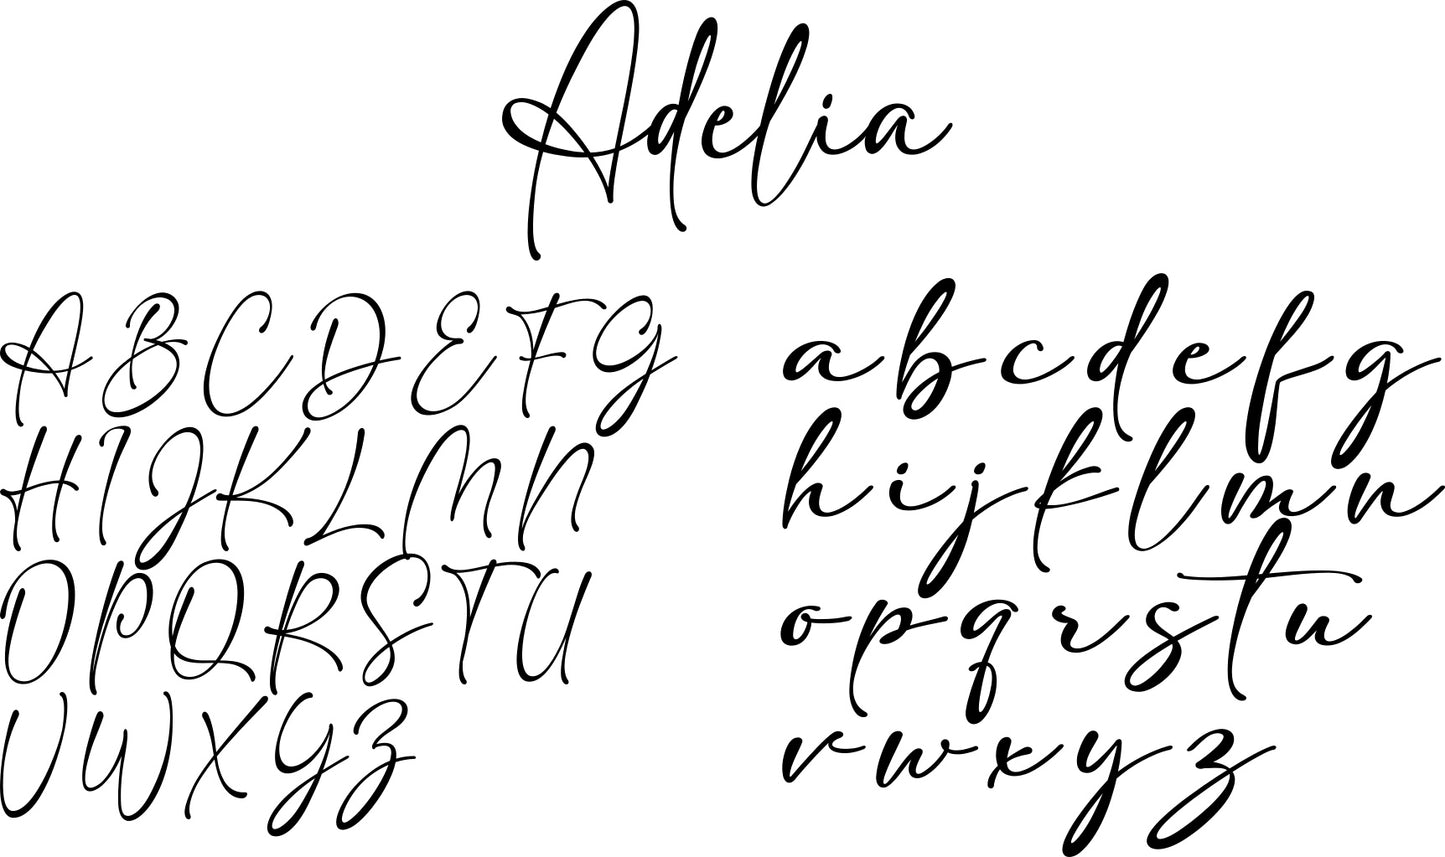 Adelia
A B C D E F G
H I J K L M N
O P Q R S T U
V W X Y Z
a b c d e f g
h i j k l m n
o p q r s t u
v w x y z